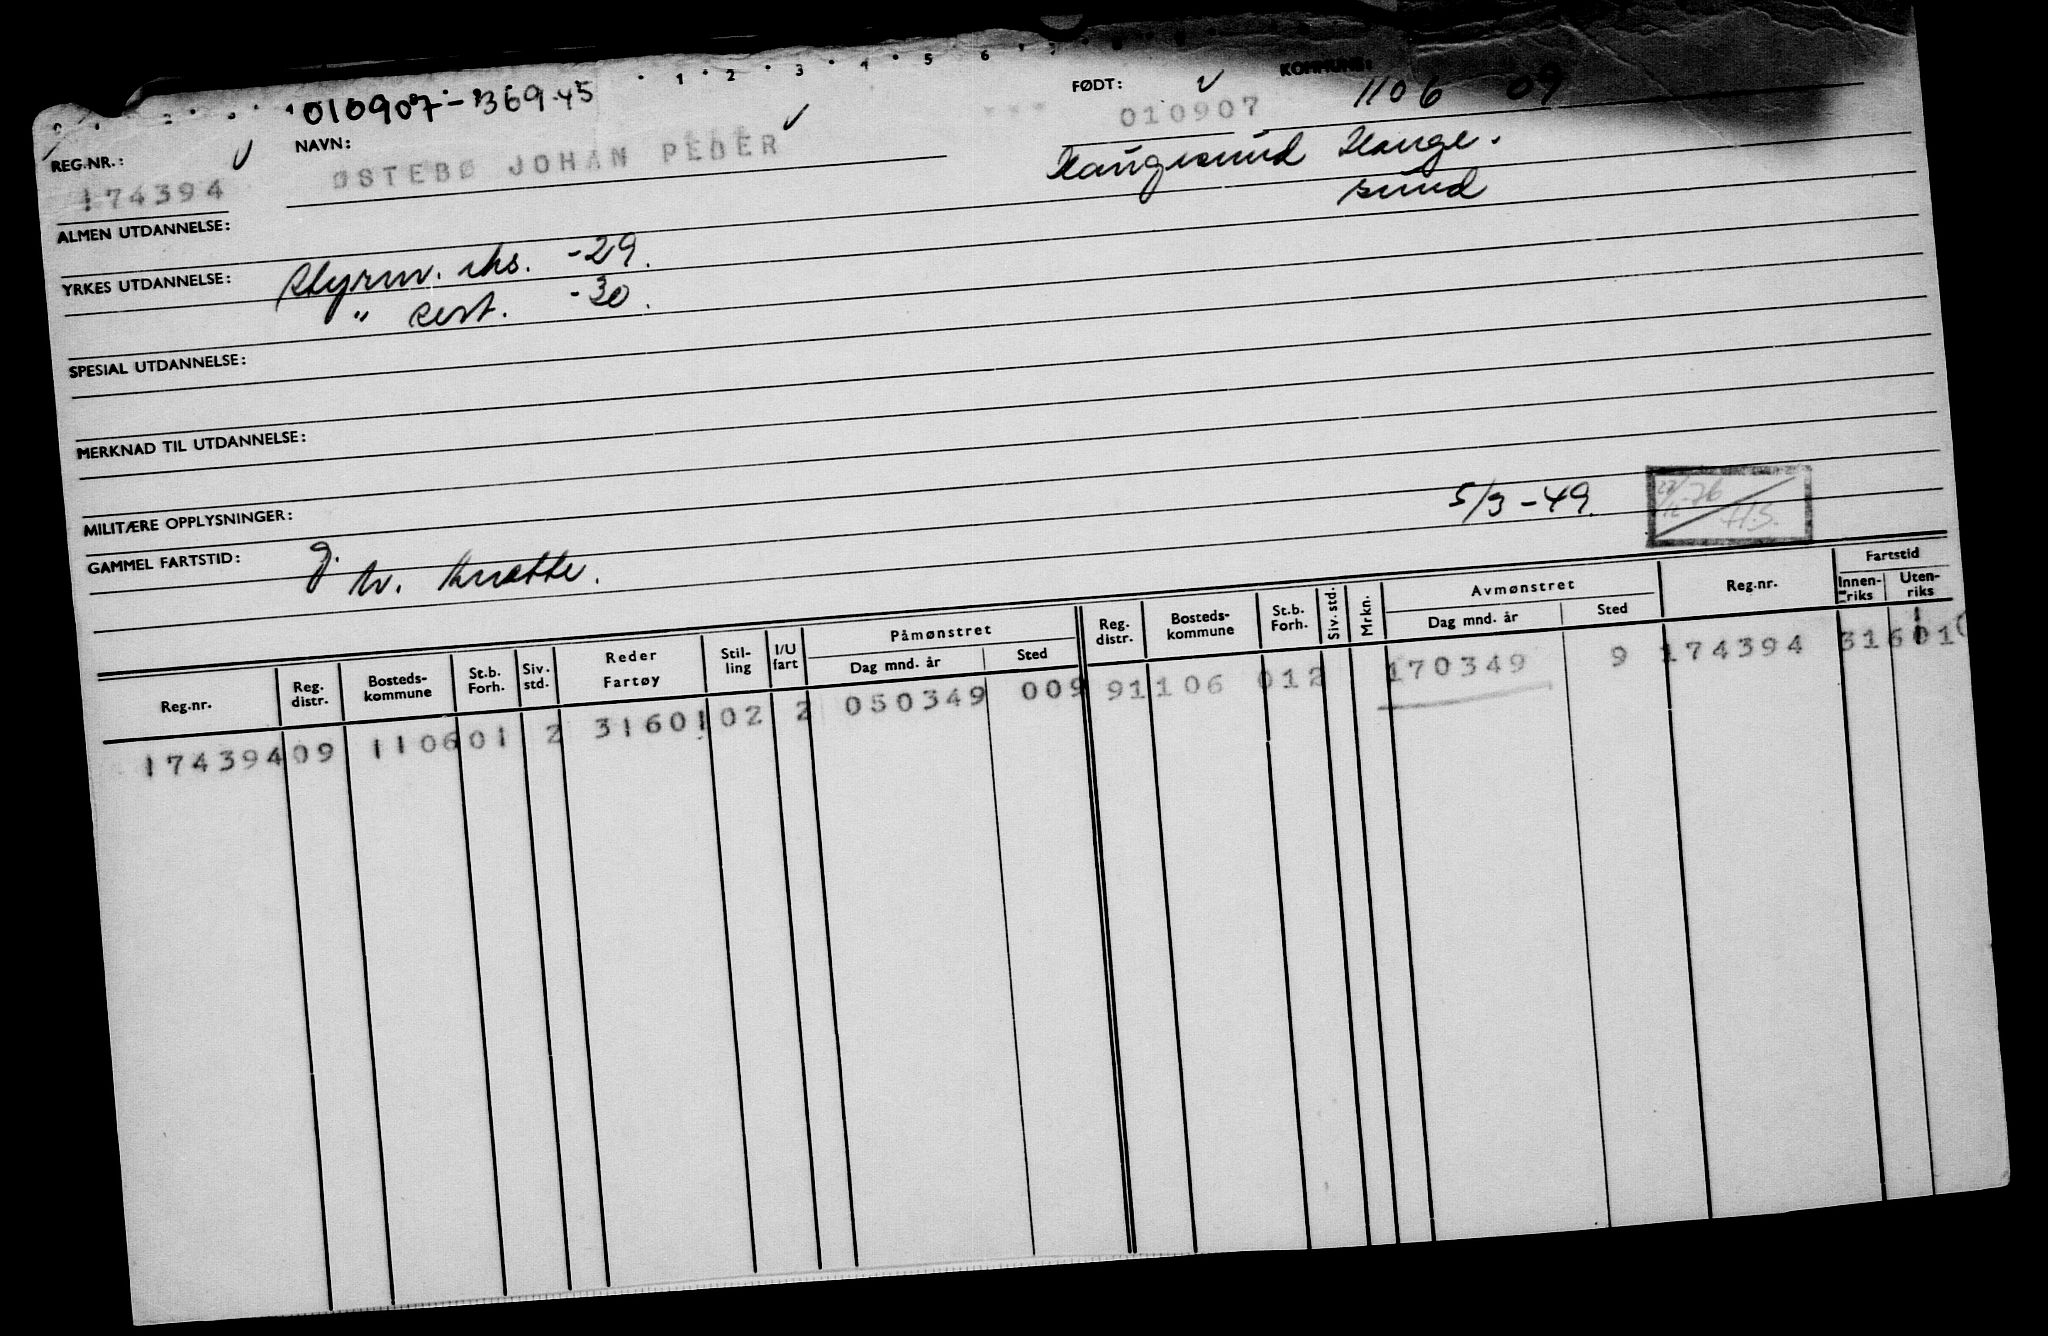 1 2 3 4 5 6 7
010907-36945
FØDT: KOMMUNE: 1106 09
REG.NR.: NAVN: 010907
174394 ØSTEBØ JOHAN PEDER Haugesund Hauge-
sund
ALMEN UTDANNELSE:
YRKES UTDANNELSE: Styrm. eks. -29.
" sert. -30.
SPESIAL UTDANNELSE:
MERKNAD TIL UTDANNELSE:
MILITÆRE OPPLYSNINGER: 5/3-49.
H.S.
GAMMEL FARTSTID:
Reg.nr. Reg. distr. Bosteds-kommune St.b. Forh. Siv. std. Reder Fartøy Stil-ling I/U fart Påmønstret Dag mnd. år Sted Reg. distr. Bosteds-kommune St.b. Forh. Siv. std. Mrkn. Avmønstret Dag mnd. år Sted Reg.nr. Fartstid Innen-riks Uten-riks
174394 09 1106 01 2 31601 02 2 050349 009 9 1106 012 170349 9 174394 31601